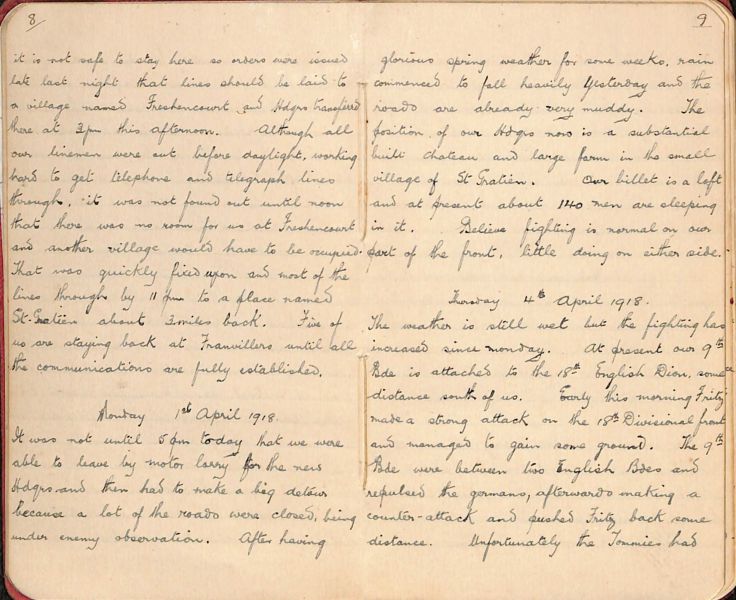 8
it is not safe to stay here so orders were issued
late last night that lines should be laid to
a village named Freshencourt and Hdqrs transferred
there at 3 pm this afternoon. Although all
our linemen were out before daylight, working
hard to get telephone and telegraph lines
through, it was not found out until noon
that there was no room for us at Freshencourt
and another village would have to be occupied.
That was quickly fixed upon and most of the
lines through by 11 pm to a place named
St-Gratien about 3 miles back. Five of
us are staying back at Franvillers until all
the communications are fully established.
Monday 1st April 1918.
It was not until 5 pm today that we were
able to leave by motor lorry for the new
Hdqrs and then had to make a big detour
because a lot of the roads were closed, being
under enemy observation. After having
9
glorious spring weather for some weeks, rain
commenced to fall heavily yesterday and the
roads are already very muddy. The
position of our Hdqrs now is a substantial
built chateau and large farm in the small
village of St Gratien. Our billet is a loft
and at present about 140 men are sleeping
in it. Believe fighting is normal on our
part of the front, little doing on either side.
Thursday 4th April 1918.
The weather is still wet but the fighting has
increased since monday. At present our 9th
Bde is attached to the 18th English Divn, some
distance south of us. Early this morning Fritz
made a strong attack on the 18th Divisional front
and managed to gain some ground. The 9th
Bde were between two English Bdes and
repulsed the germans, afterwards making a
counter-attack and pushed Fritz back some
distance. Unfortunately the Tommies had